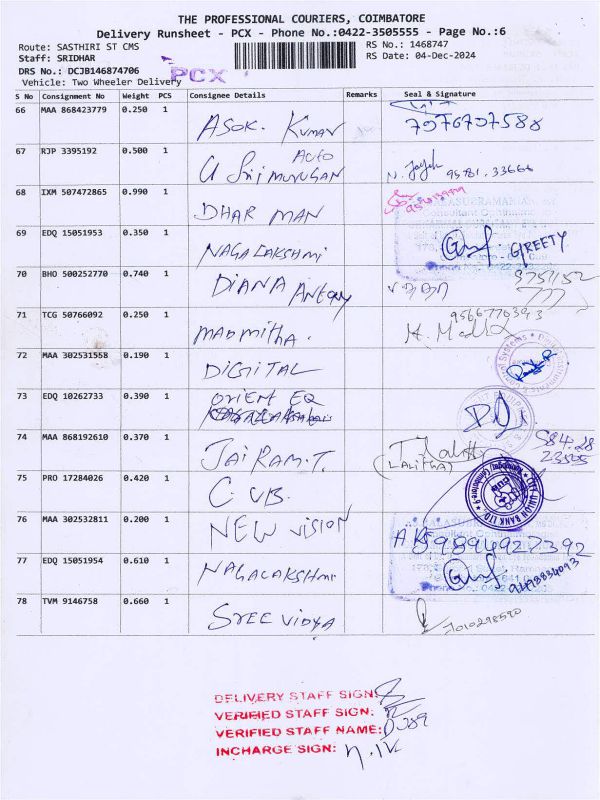 THE PROFESSIONAL COURIERS, COIMBATORE
Delivery Runsheet - PCX - Phone No.:0422-3505555 - Page No.:6
Route: SASTHIRI ST CMS RS No.: 1468747
Staff: SRIDHAR RS Date: 04-Dec-2024
DRS No.: DCJB146874706
PCX
Vehicle: Two Wheeler Delivery
S No Consignment No Weight PCS Consignee Details Remarks Seal & Signature
66 MAA 868423779 0.250 1 ASOK. KUMAN 7976707588
67 RJP 3395192 0.500 1 G Srimurugan AUTO 95781.33666
68 IXM 507472865 0.990 1 DHAR MAN
69 EDQ 15051953 0.350 1 NAGALAKSHMI GREETY
70 BHO 500252770 0.740 1 DIANA ANTONY
71 TCG 50766092 0.250 1 MADMITHA.
72 MAA 302531558 0.190 1 DIGITAL
73 EDQ 10262733 0.390 1 ORIENT EQ
74 MAA 868192610 0.370 1 JAIRAM.T. (LALITHA) 98428 23505
75 PRO 17284026 0.420 1 C.UB. CITY UNION BANK LTD.
76 MAA 302532811 0.200 1 NEW VISION 9894927392
77 EDQ 15051954 0.610 1 NAGALAKSHMI
78 TVM 9146758 0.660 1 SREE VIDYA
DELIVERY STAFF SIGN:
VERIFIED STAFF SIGN:
VERIFIED STAFF NAME:
INCHARGE SIGN: